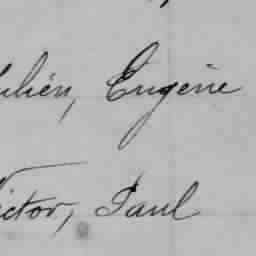 ulien, Eugène
ictor, Paul